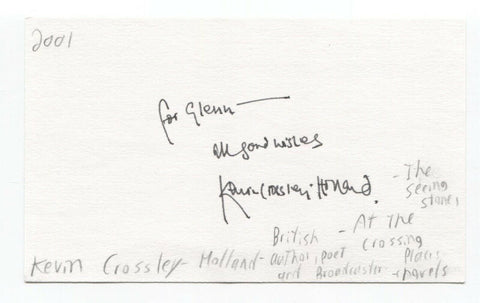 2001
for Glenn —
all good wishes
Kevin Crossley-Holland.
- The
seeing
stone,
- At the
crossing
Places
- novels
British
author, poet
and Broadcaster
Kevin Crossley-Holland-